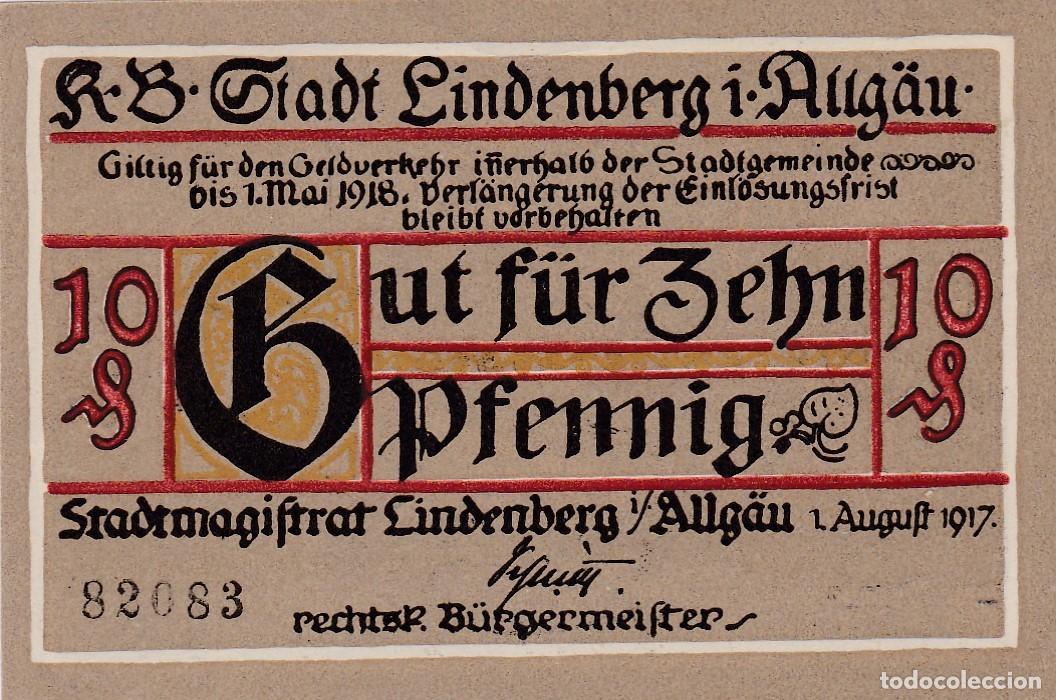 K. B. Stadt Lindenberg i. Allgäu.
Giltig für den Geldverkehr in̄erhalb der Stadtgemeinde
bis 1. Mai 1918. Verlängerung der Einlösungsfrist
bleibt vorbehalten
10 ₰
Gut für Zehn
Pfennig
10 ₰
Stadtmagistrat Lindenberg i/Allgäu 1. August 1917.
82083
rechtsk. Bürgermeister
todocoleccion